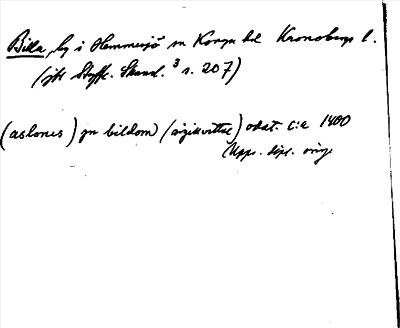 Billa, by i Hemmesjö sn Konga hd Kronobergs l.
(jfr Styffe. Skand.³ s. 207)
(aslones) jn bildom (sigillvittne) odat. c:a 1400
Upps. dipl. orig.